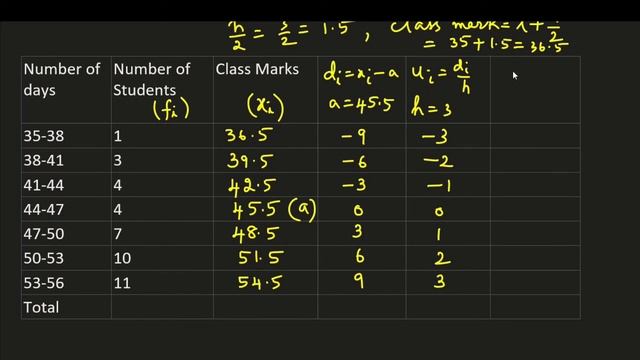 h/2 = 3/2 = 1.5 , Class mark =
= 35+1.5=36.5
Number of days Number of Students (fi) Class Marks (xi) di=xi-a a=45.5 ui=di/h h=3
35-38 1 36.5 -9 -3
38-41 3 39.5 -6 -2
41-44 4 42.5 -3 -1
44-47 4 45.5 (a) 0 0
47-50 7 48.5 3 1
50-53 10 51.5 6 2
53-56 11 54.5 9 3
Total